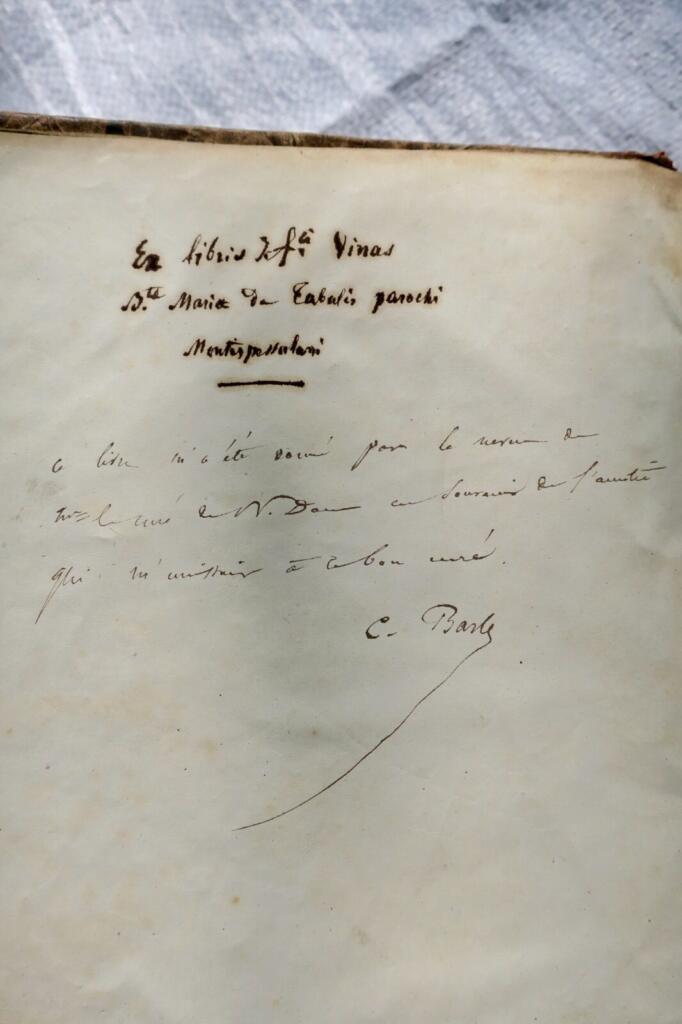 Ex libris Vinas
B.tæ Mariæ de Tabulis parochi
Montispessulani
ce livre m'a été donné par le neveu de
mr le curé de N. Dame en souvenir de l'amitié
qui m'unissait à ce bon curé.
C. Barle